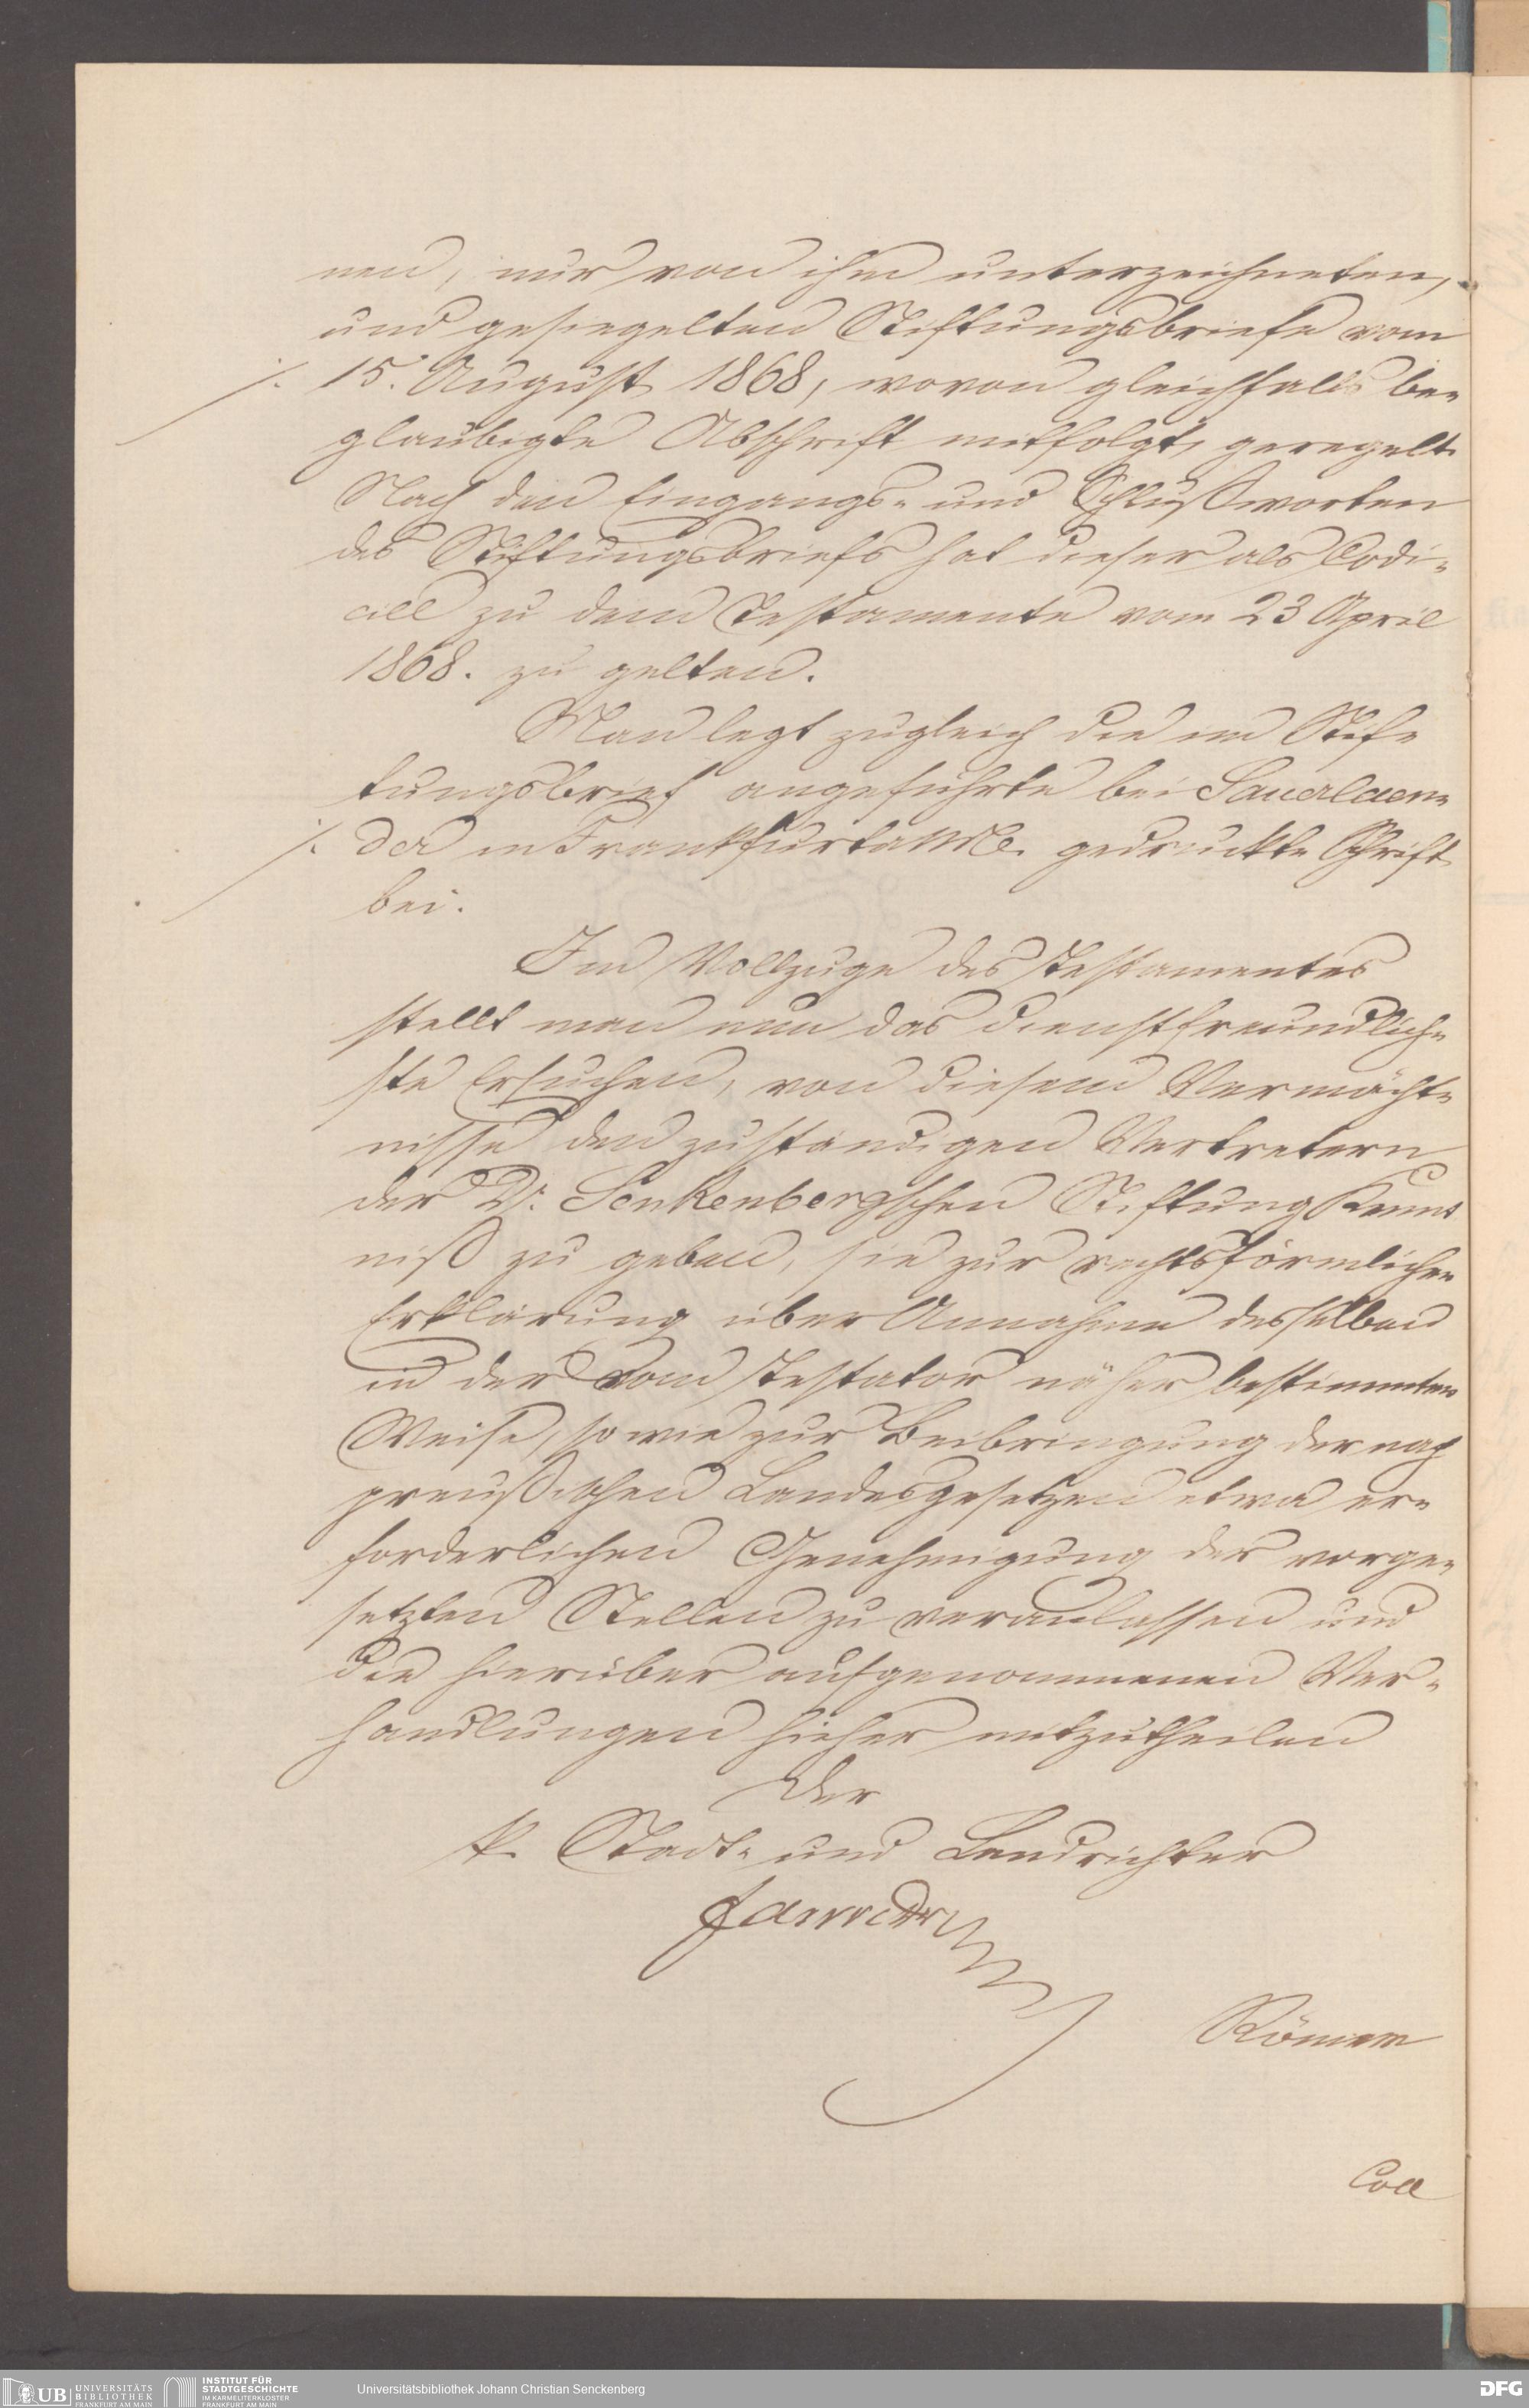 nen, nur von ihm unterzeichneten,
und gesiegelten Stiftungsbriefe vom
./. 15. August 1868, wovon gleichfalls be-
glaubigte Abschrift mitfolgt, geregelt.
Nach den Eingangs- und Schlußworten
des Stiftungsbriefs hat dieser als Codi-
cill zu dem Testamente vom 23 April
1868. zu gelten.
Man legt zugleich die im Stif-
tungsbrief angeführte bei Sauerlaen-
./. der in Frankfurt a/M. gedruckte Schrift
bei.
Im Vollzuge des Testamentes
stellt man nun das dienstfreundlich-
ste Ersuchen, von diesem Vermächt-
nisse den zuständigen Vertretern
der Dr. Senkenbergschen Stiftung Kennt
niß zu geben, sie zur rechtsförmlichen
Erklärung über Annahme desselben
in der vom Testator näher bestimmten
Weise, sowie zur Beibringung der nach
preußischen Landesgesetzen etwa er-
forderlichen Genehmigung der vorge-
setzten Stellen zu veranlassen und
die hierüber aufgenommenen Ver-
handlungen hieher mitzutheilen
Der
k. Stadt- und Landrichter
Römer
Coll
UB UNIVERSITÄTS BIBLIOTHEK FRANKFURT AM MAIN
INSTITUT FÜR STADTGESCHICHTE IM KARMELITERKLOSTER FRANKFURT AM MAIN
Universitätsbibliothek Johann Christian Senckenberg
DFG